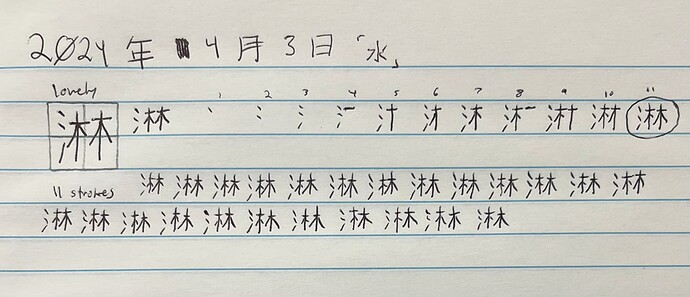 2024年 4月3日「水」
lovely 1 2 3 4 5 6 7 8 9 10 11
淋 淋 丶 冫 氵 汁 沐 淋
11 strokes 淋 淋 淋 淋 淋 淋 淋 淋 淋 淋 淋 淋 淋
淋 淋 淋 淋 淋 淋 淋 淋 淋 淋 淋